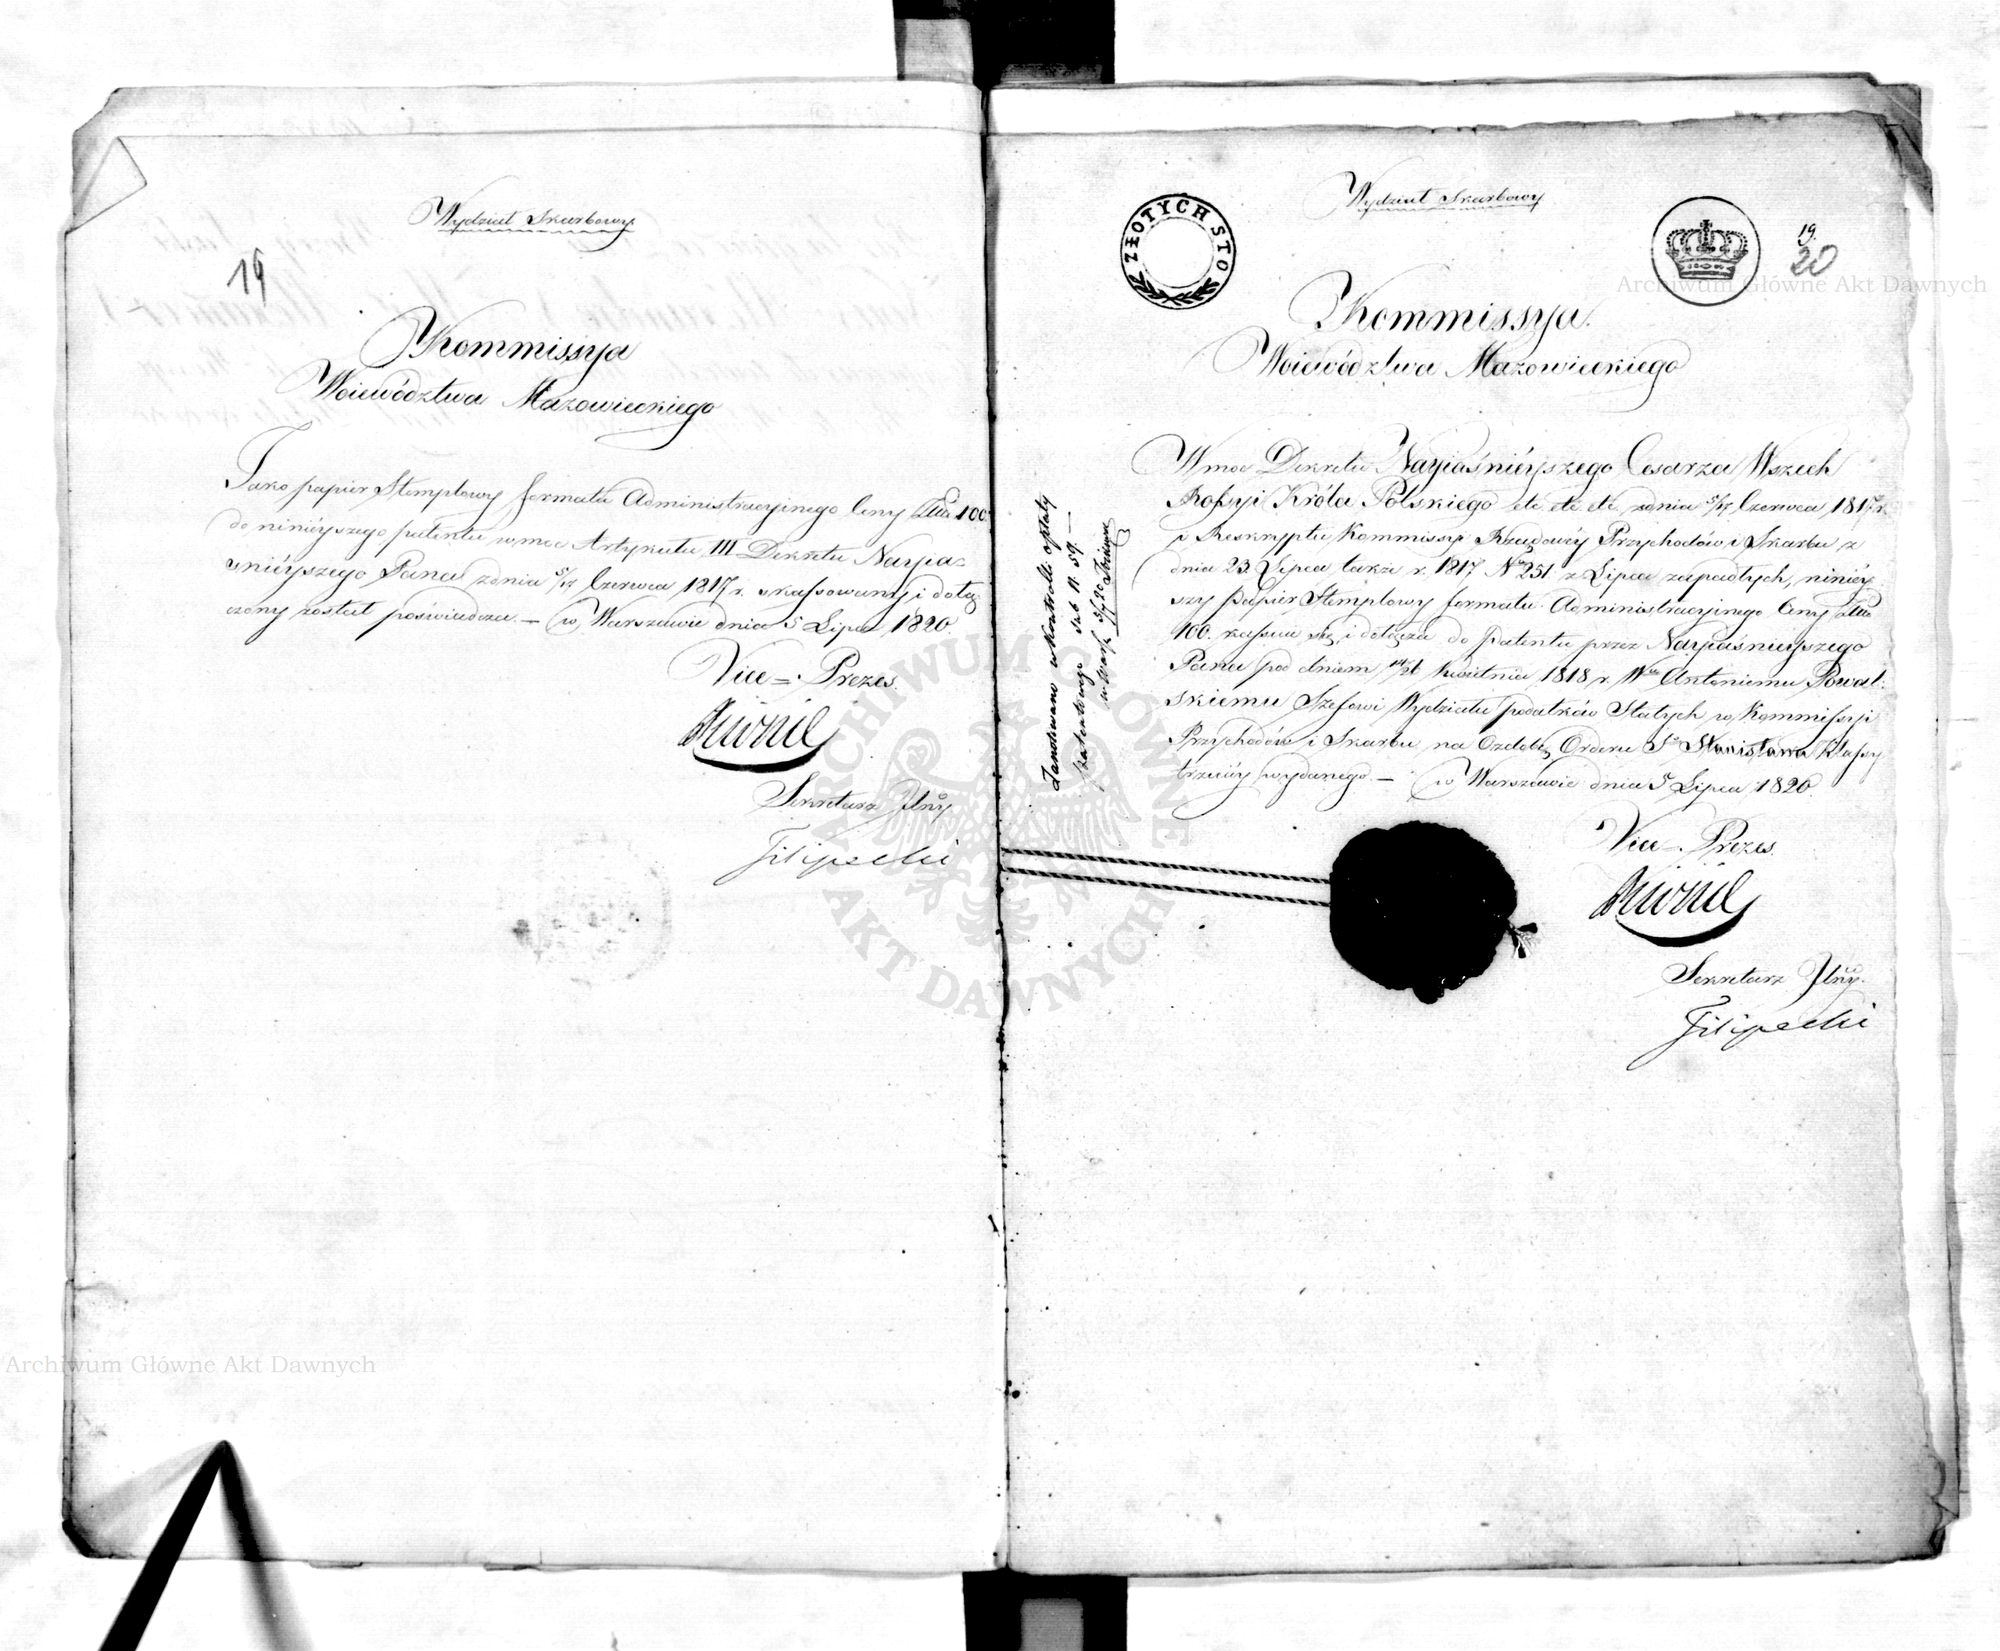 Wydział Skarbowy
19
Kommissya
Woiewództwa Mazowieckiego
Jako papier Stemplowy formatu Administracyinego Ceny Złłt 100
do ninieyszego patentu w moc Artykułu III Dekretu Nayia-
śnieyszego Pana z dnia 5/17 Czerwca 1817 r. skassowany i dołą-
czony został poświadcza. — w Warszawie dnia 5 Lipca 1820.
Vice-Prezes.
Sekretarz Jlny
Filipecki
Wydział Skarbowy
ZŁOTYCH STO
19.
20
Kommissya.
Woiewództwa Mazowieckiego
W moc Dekretu Nayiaśnieyszego Cesarza Wszech
Rossyi Króla Polskiego etc etc etc z dnia 5/17 Czerwca 1817 r.
i Reskryptu Kommissyi Rządowéy Przychodów i Skarbu z
dnia 23 Lipca także r. 1817 No 251 z Lipca zapadłych, niniey-
szy papier Stemplowy formatu Administracyinego Ceny Złłt
100. kassuie się i dołącza do Patentu przez Nayiaśnieyszego
Pana pod dniem 14/26 Kwietnia 1818 r. Wu Antoniemu Powal-
skiemu Szefowi Wydziału podatków Stałych w Kommissyi
Przychodów i Skarbu na Ozdobę Orderu Sgo Stanisława Klassy
trzeciéy wydanego — w Warszawie dnia 5 Lipca 1820.
Vice-Prezes.
Sekretarz Jlny.
Filipecki
w Kontrolli opłaty
Archiwum Główne Akt Dawnych
Archiwum Główne Akt Dawnych
ARCHIWUM GŁÓWNE AKT DAWNYCH